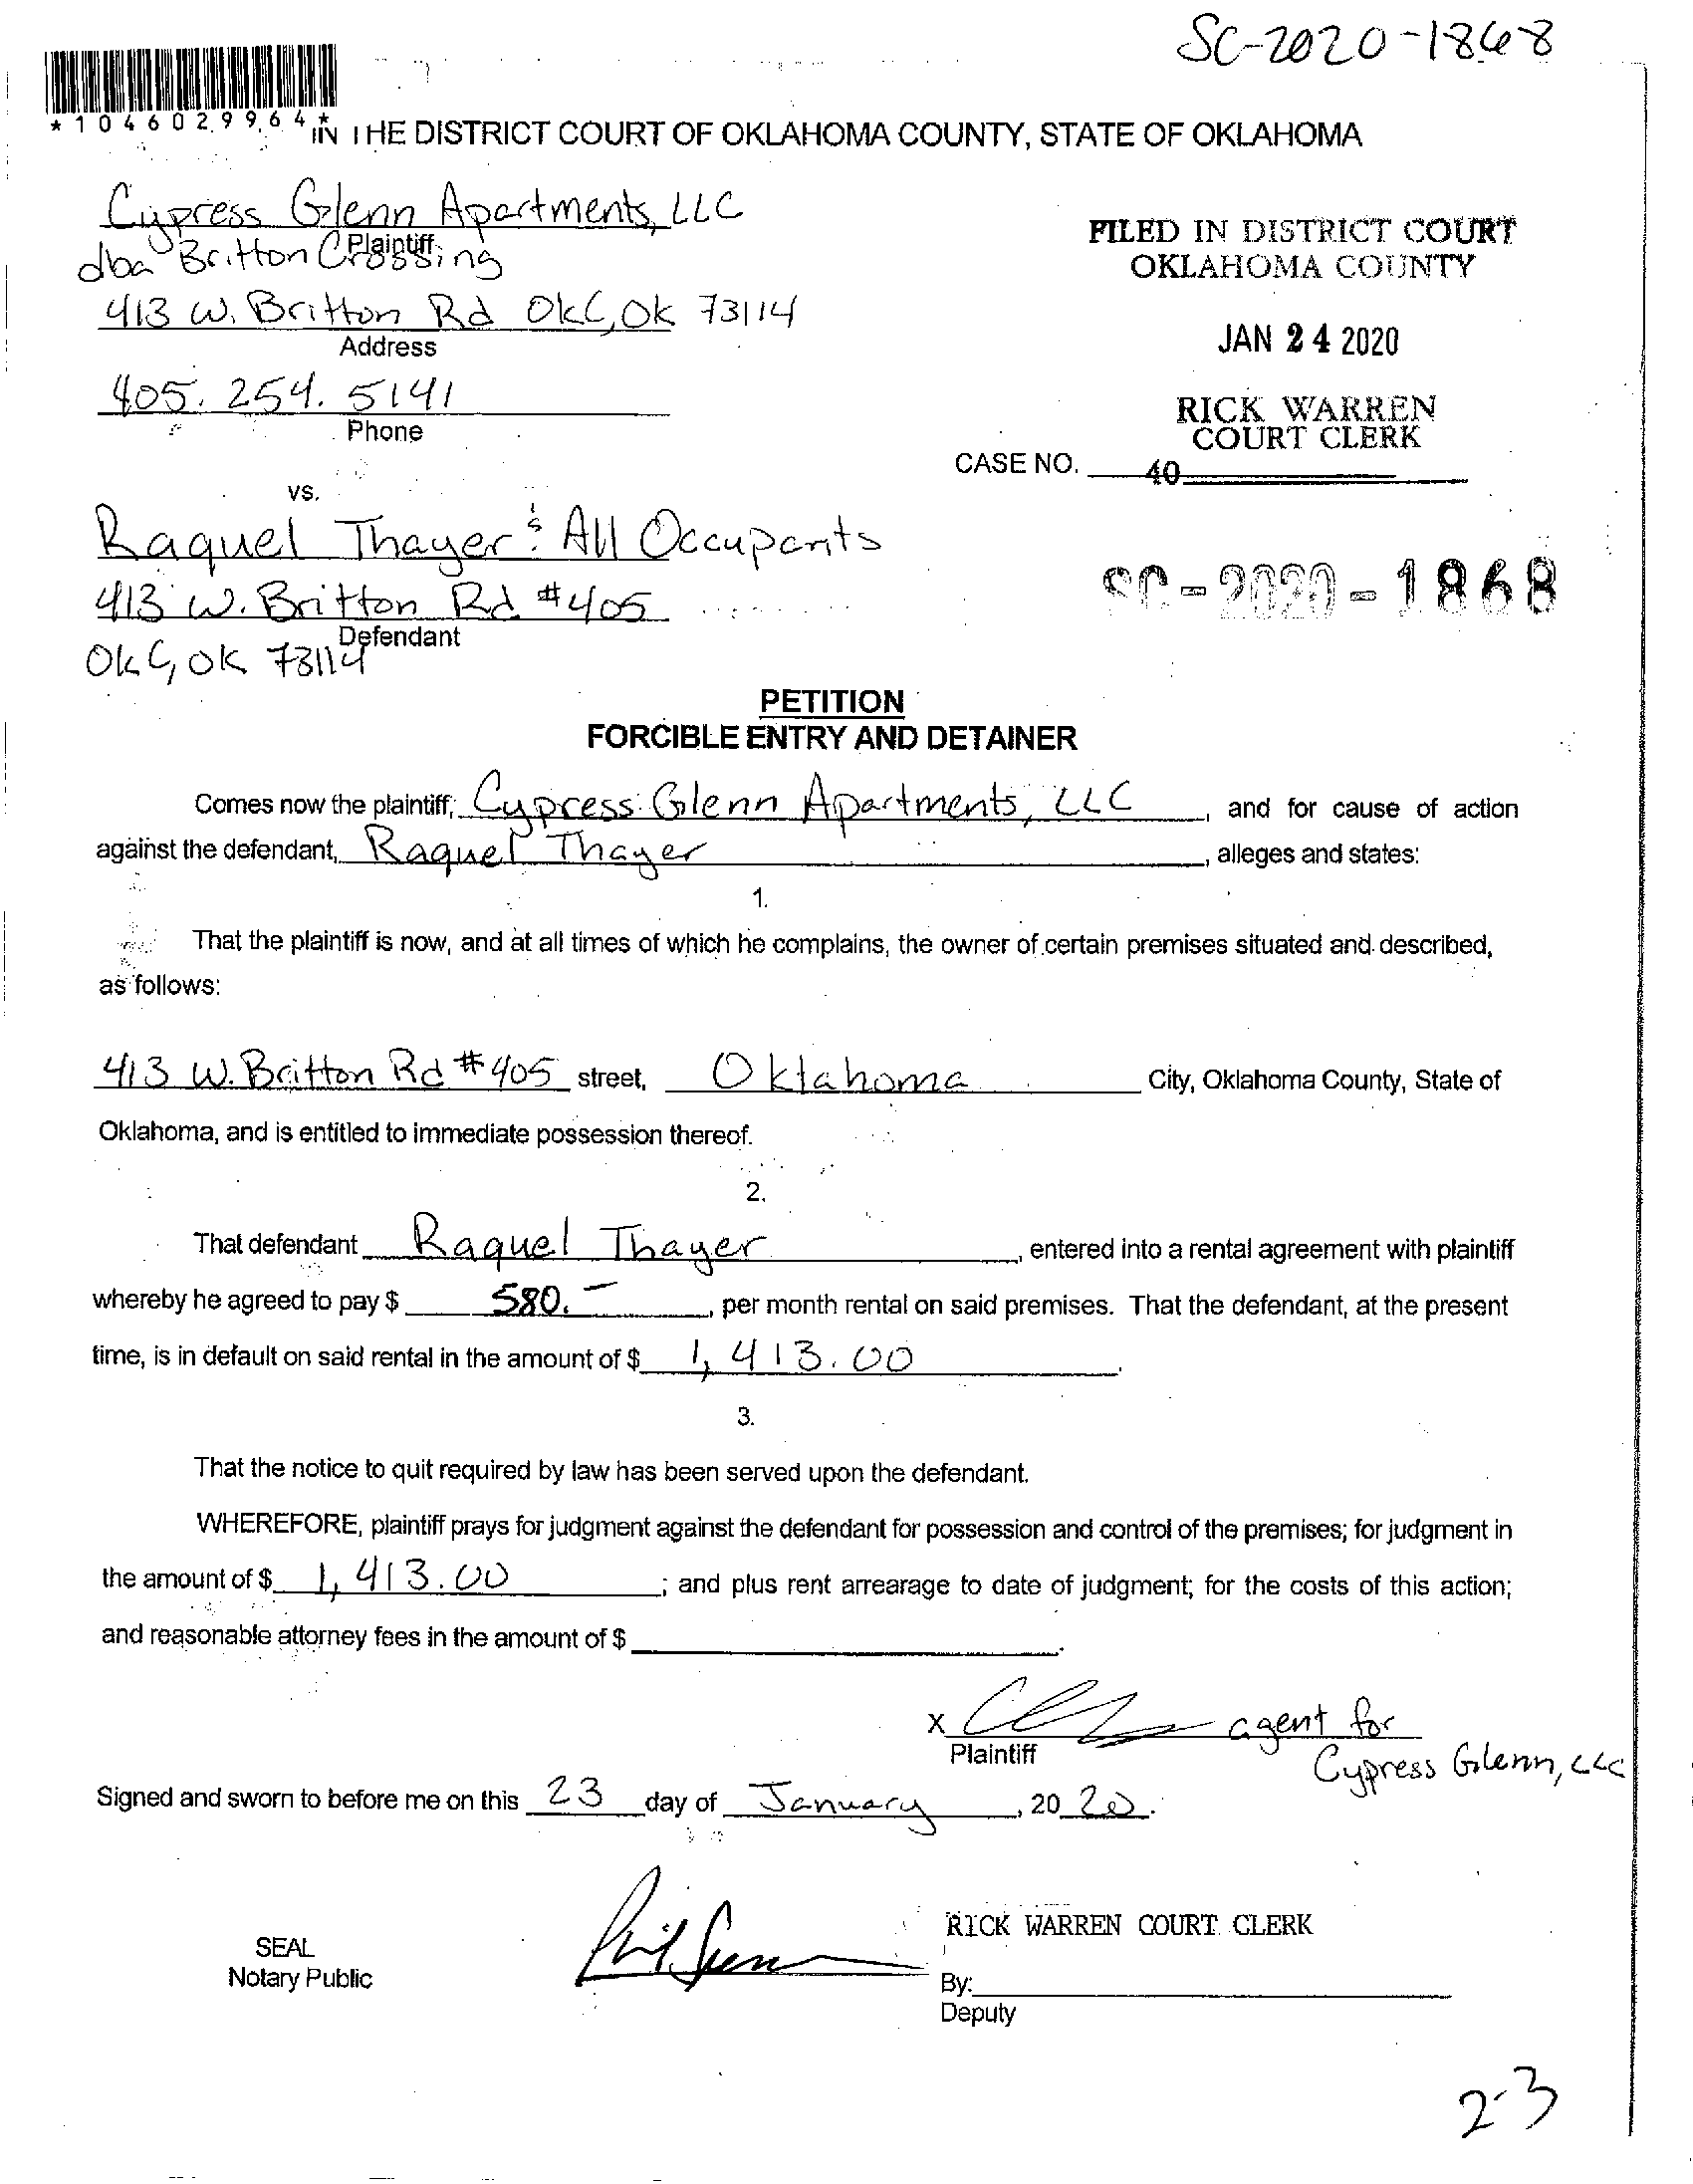 SC-2020-1868
*1046029964*
IN THE DISTRICT COURT OF OKLAHOMA COUNTY, STATE OF OKLAHOMA
Cypress Glenn Apartments, LLC
Plaintiff
dba Britton Crossing
413 W. Britton Rd OKC, OK 73114
Address
405. 254. 5141
Phone
FILED IN DISTRICT COURT
OKLAHOMA COUNTY
JAN 24 2020
RICK WARREN
COURT CLERK
CASE NO. 40
vs.
Raquel Thayer & All Occupants
413 W. Britton Rd #405
Defendant
OKC, OK 73114
SC-2020-1868
PETITION
FORCIBLE ENTRY AND DETAINER
Comes now the plaintiff, Cypress Glenn Apartments, LLC, and for cause of action
against the defendant, Raquel Thayer, alleges and states:
1.
That the plaintiff is now, and at all times of which he complains, the owner of certain premises situated and described,
as follows:
413 W. Britton Rd #405 street, Oklahoma City, Oklahoma County, State of
Oklahoma, and is entitled to immediate possession thereof.
2.
That defendant Raquel Thayer, entered into a rental agreement with plaintiff
whereby he agreed to pay $ 580.-, per month rental on said premises. That the defendant, at the present
time, is in default on said rental in the amount of $ 1,413.00.
3.
That the notice to quit required by law has been served upon the defendant.
WHEREFORE, plaintiff prays for judgment against the defendant for possession and control of the premises; for judgment in
the amount of $ 1,413.00; and plus rent arrearage to date of judgment; for the costs of this action;
and reasonable attorney fees in the amount of $ .
X agent for
Plaintiff
Cypress Glenn, LLC
Signed and sworn to before me on this 23 day of January, 2020.
RICK WARREN COURT CLERK
SEAL
Notary Public
By:
Deputy
2-3